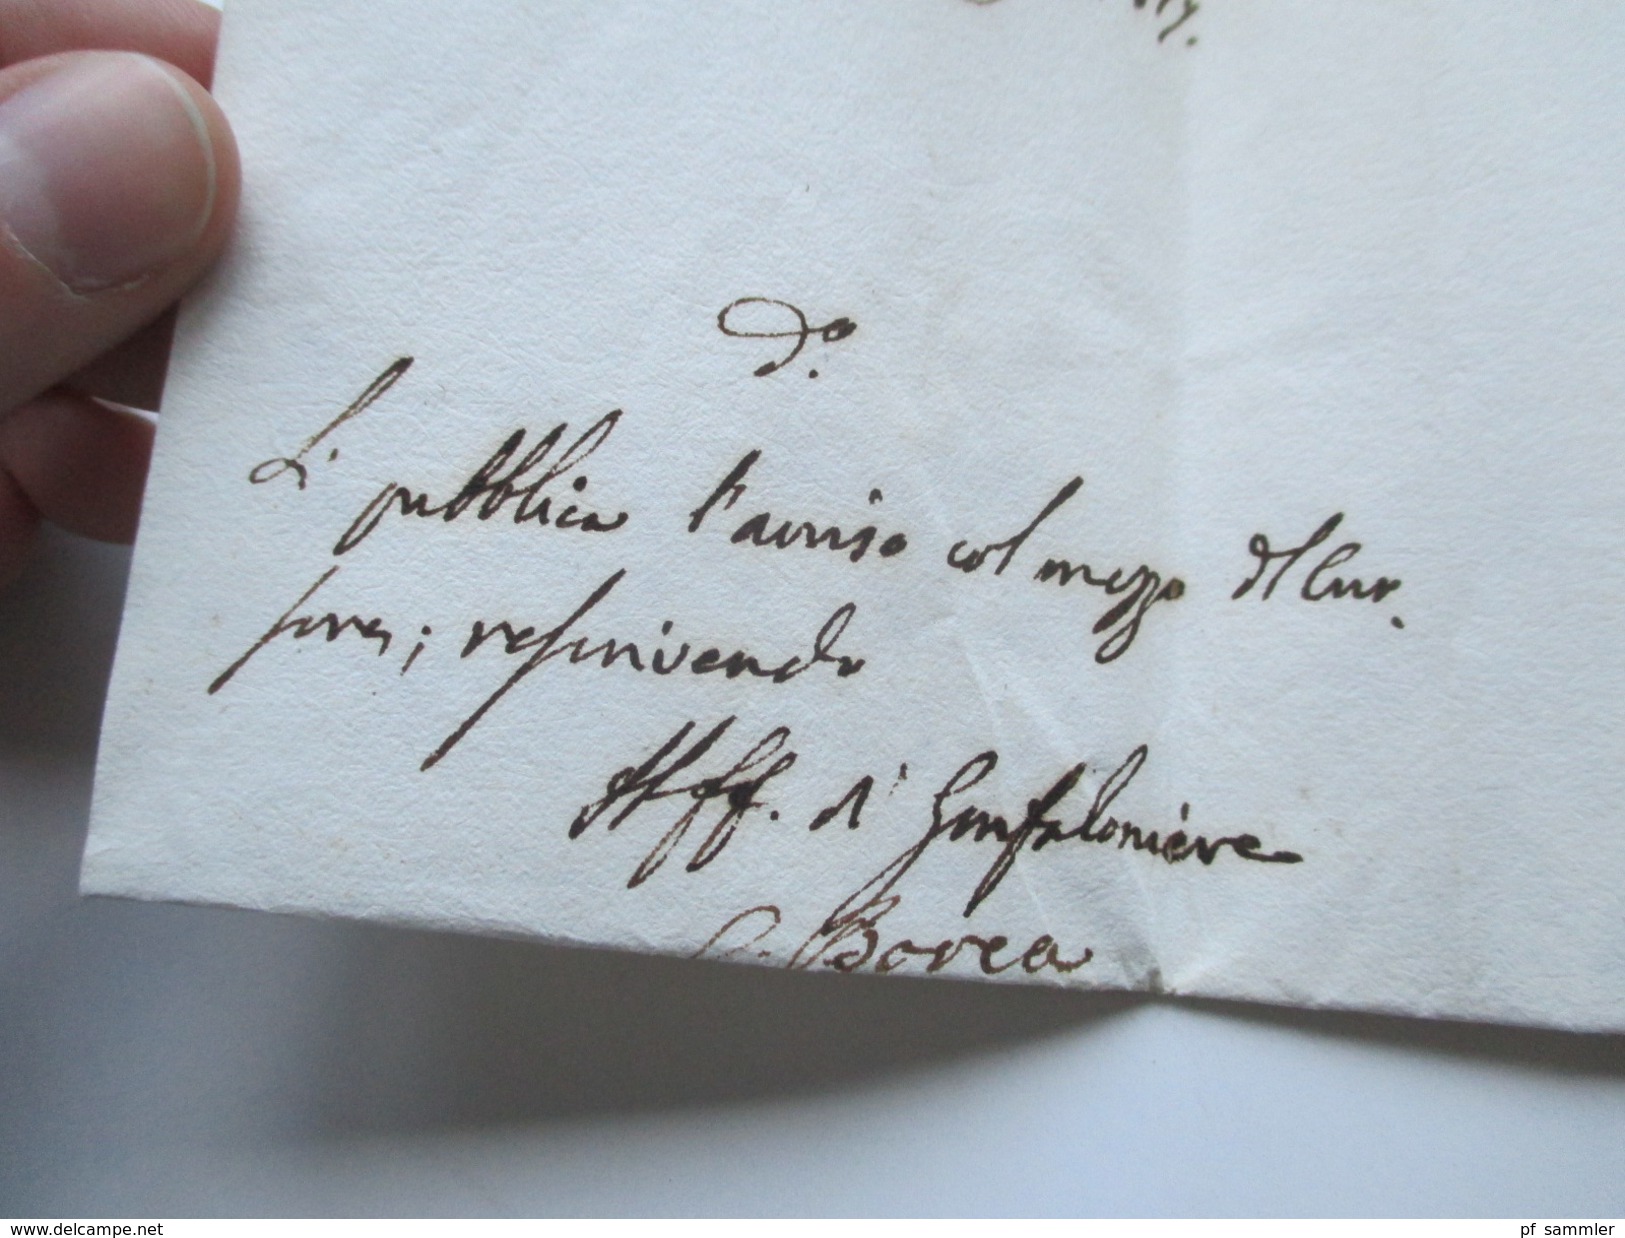 D.o
Si pubblica l'avviso col mezzo del Cur-
sore; rescrivendo
Il ff. di Gonfaloniere
Borea
www.delcampe.net
pf_sammler